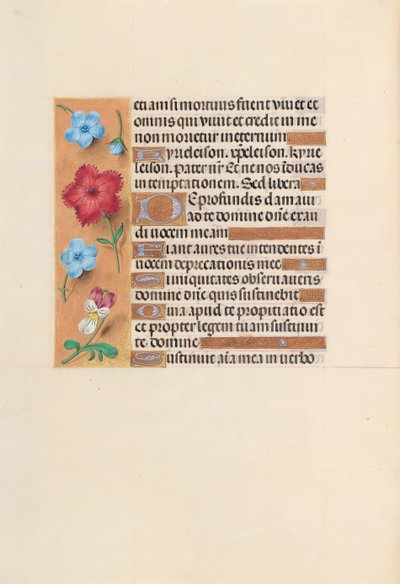 etiam si mortuus fuerit vivit et
omnis qui vivit et credit in me
non morietur in eternum
Kyrieleison. xp̄eleison. kyrie
leison. pater nr̄ Et ne nos īducas
in temptationem. Sed libera
De profundis clamavi
ad te domine dn̄e exau
di vocem meam
Fiant aures tue intendentes ī
vocem deprecationis mee
Si iniquitates observaveris
domine dn̄e quis sustinebit
Quia apud te propitiatio est
et propter legem tuam sustinui
te domine
Sustinuit aīa mea in verbo